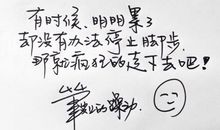 有时候，明明累了
却没有办法停止脚步，
那就疯狂的走下去吧！
44
事业的躁动.